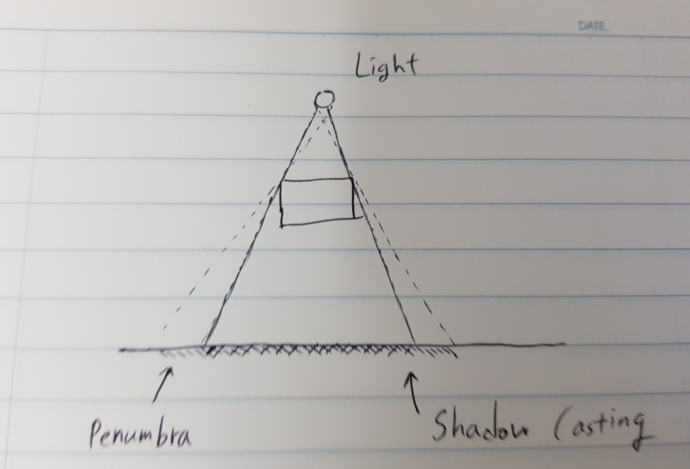 DATE.
Light
Penumbra
Shadow Casting